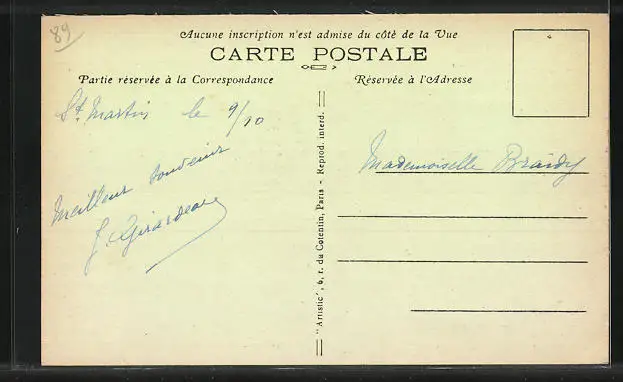 89
Aucune inscription n'est admise du côté de la Vue
CARTE POSTALE
Partie réservée à la Correspondance
Réservée à l'Adresse
St Martin le 9/10
Meilleur souvenir
J. Girardeau
"Artistic", 6, r. du Cotentin, Paris - Reprod. interd.
Mademoiselle Braidy